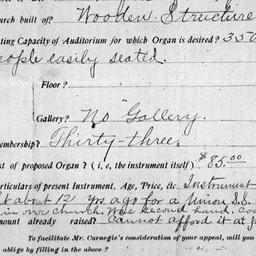 urch built of? Wooden Structure
ting Capacity of Auditorium for which Organ is desired? 350
eople easily seated.
Floor?
Gallery? "No" Gallery.
embership? Thirty-three.
st of proposed Organ? (i, e, the instrument itself) $85.00
articulars of present Instrument, Age, Price, &c Instrument
t about 12 yrs ago for a Union S.S.
in our church. Was second hand. Cos
amount already raised? Cannot afford it at
To facilitate Mr. Carnegie's consideration of your appeal, will you
oblige by filling in the above?